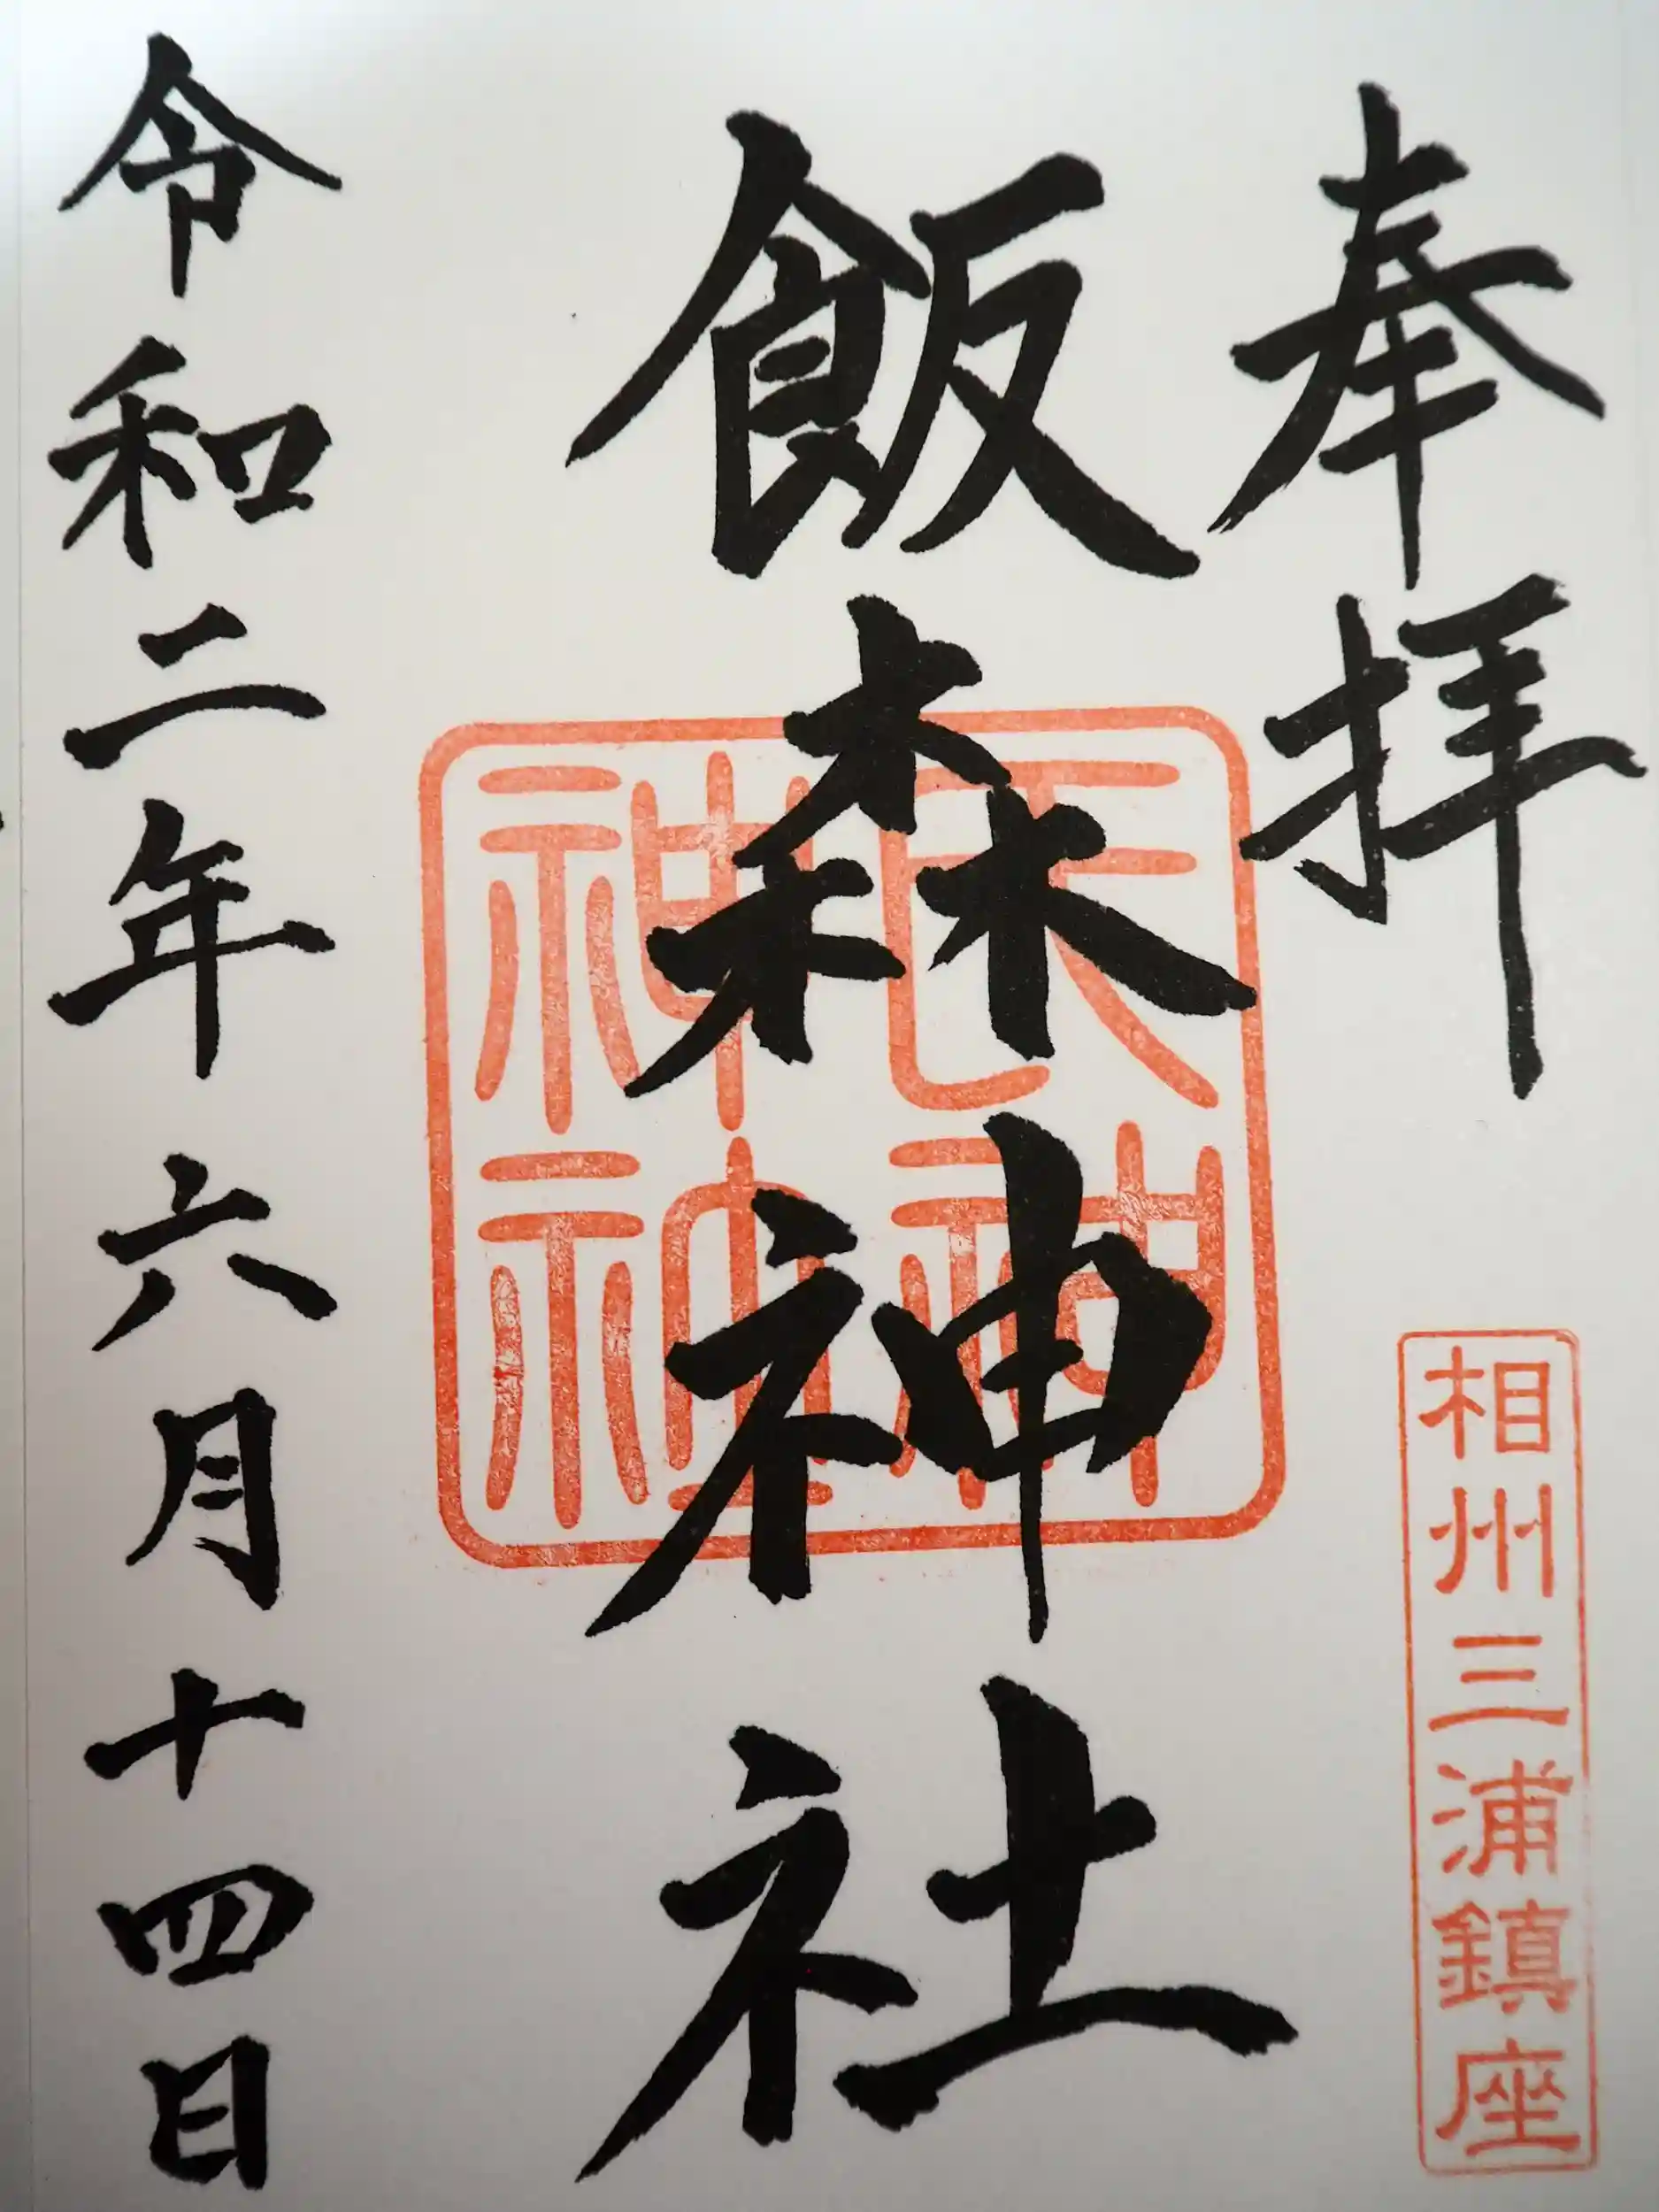 奉拝
相州三浦鎮座
飯森神社
天神
神社
令和二年六月十四日